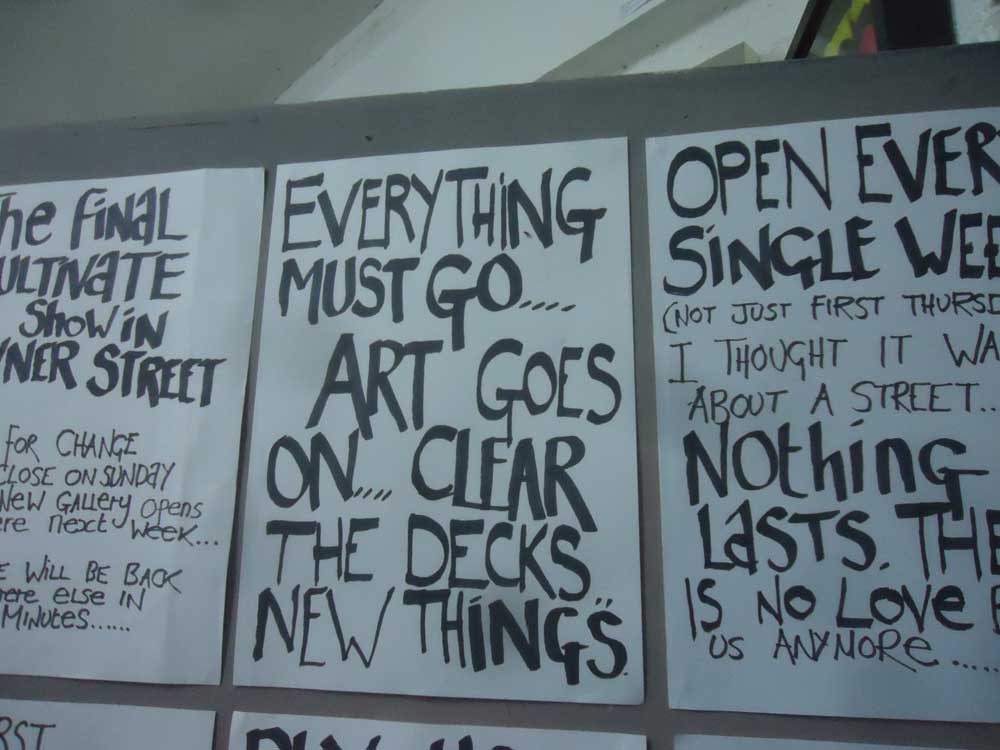 The FiNAL
ULTIVATE
SHOW iN
YNER STREET
FOR CHANGE
CLOSE ON SUNDAY
NEW GALLERY OPENS
ere next week...
E WiLL BE BACK
ere else IN
MINUTES......
EVERYTHiNG
MUST GO.....
ART GOES
ON.... CLEAR
THE DECKS..
NEW THiNGS.
OPEN EVER
SiNGLE WEE
(NOT JUST FIRST THURSD
I THOUGHT IT WA
ABOUT A STREET...
NOthiNG
LASTS. THE
IS NO LOVE
US ANYMORE.....
RST